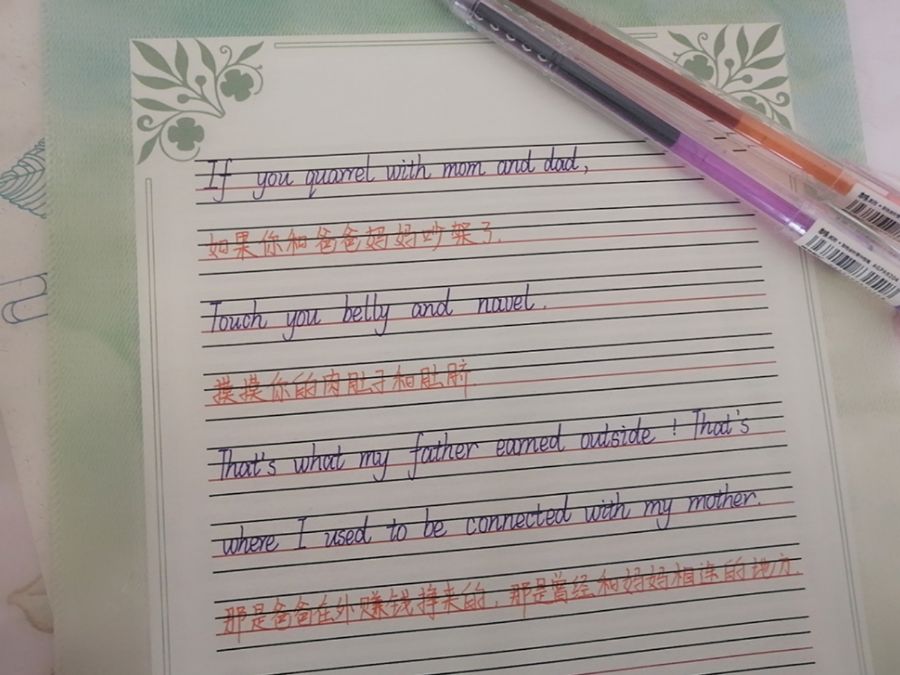 If you quarrel with mom and dad,
如果你和爸爸妈妈吵架了.
Touch you belly and navel.
摸摸你的肉肚子和肚脐.
That's what my father earned outside! That's
where I used to be connected with my mother.
那是爸爸在外赚钱挣来的，那是曾经和妈妈相连的地方.